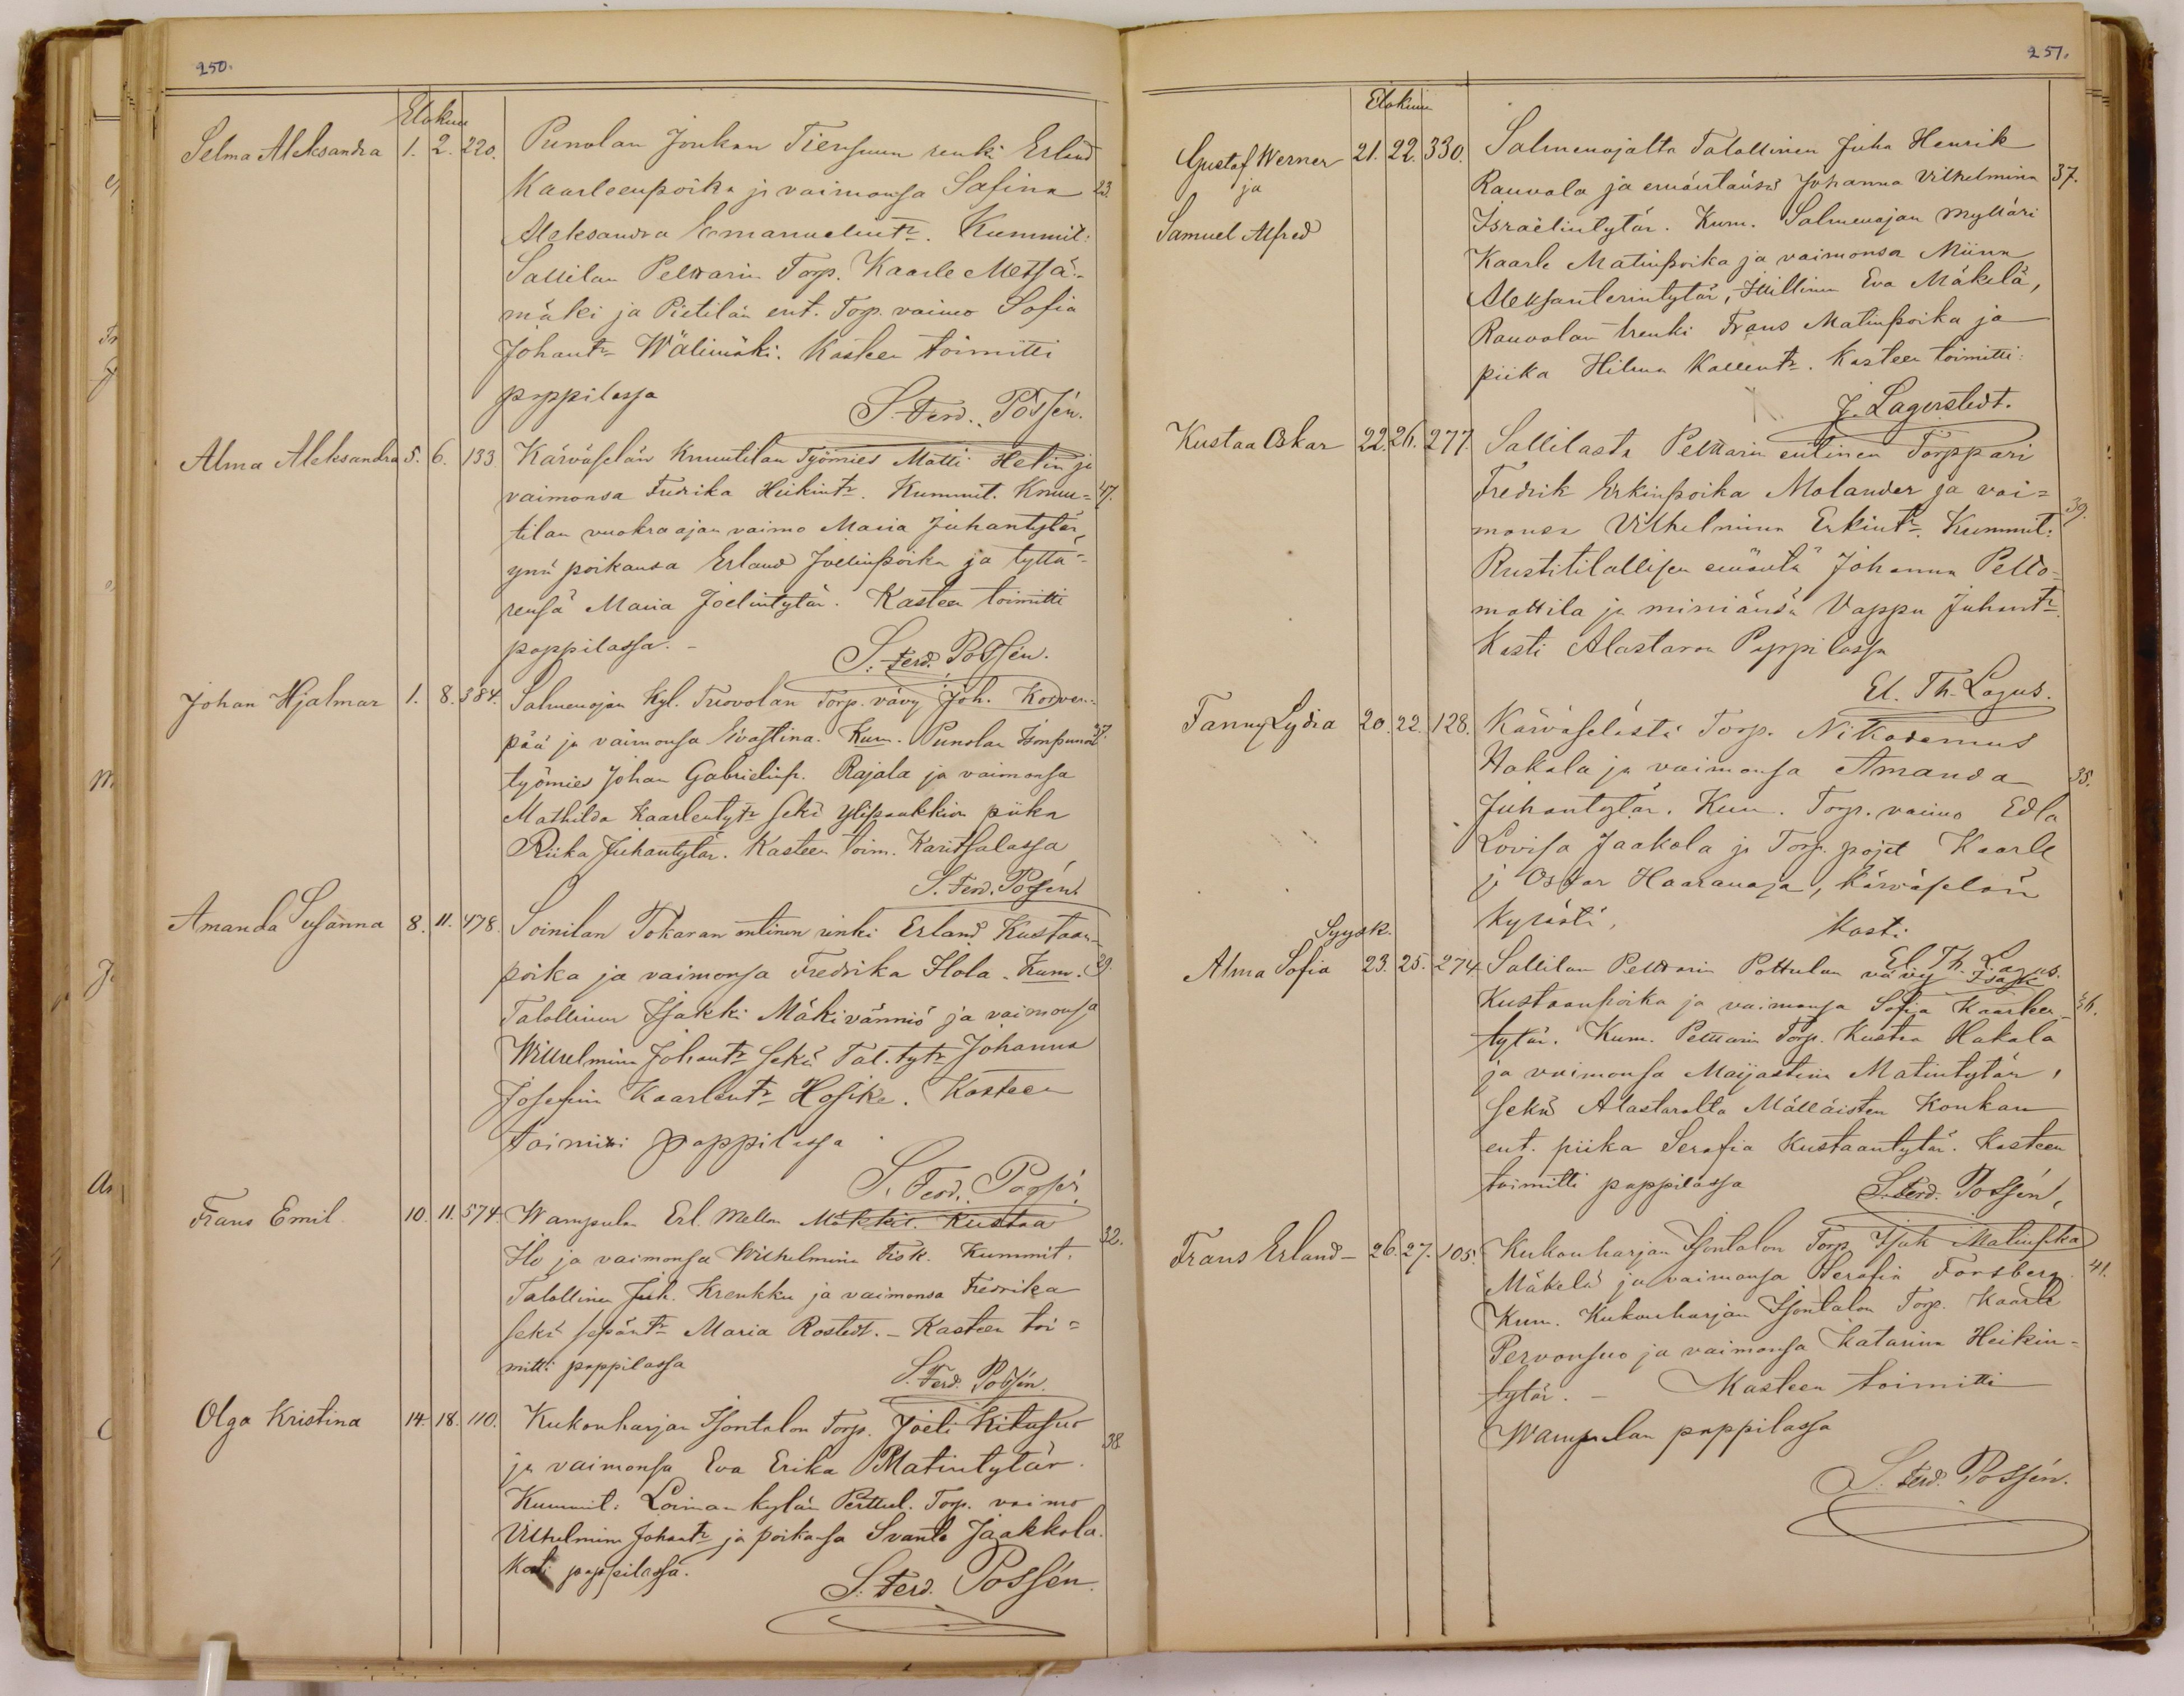 250.
Elokuu
Selma Aleksandra 1. 2. 220. Punolan Joukan Tiensuun renki Erland
Kaarleenpoika ja vaimonsa Safina 23.
Aleksandra Emanuelintr. Kummit:
Sallilan Pelttarin Torp. Kaarle Metsä-
mäki ja Pietilän ent. Torp. vaimo Sofia
Johantr Wälimäki. Kasteen toimitti
pappilassa
S. Ferd. Possén.
Alma Aleksandra 5. 6. 133. Kärväselän Knuutilan Työmies Matti Helin ja
vaimonsa Fredrika Heikintr. Kummit. Knuu= 47.
tilan vuokraajan vaimo Maria Juhantytär
ynnä poikansa Erland Joelinpoika ja tyttä=
rensä Maria Joelintytär. Kasteen toimitti
pappilassa. -
S. Ferd. Possén.
Johan Hjalmar 1. 8. 384. Salmenojan kyl. Truovolan Torp. vävy Joh. Korven-
pää ja vaimonsa Evastina. Kum. Punolan
työmies Johan Gabrielinp. Rajala ja vaimonsa
Mathilda Kaarlentytr sekä Ylipaakkion piika
Riika Juhantytär. Kasteen toim. Karitsalassa
S. Ferd. Possén.
Amanda Susanna 8. 11. 478. Soinilan Tokaran entinen renki Erland Kustaan-
poika ja vaimonsa Fredrika Ilola. Kum. 29.
Talollinen Isakki Mäkivänniö ja vaimonsa
Wilhelmina Johantr sekä Tal. tytr Johanna
Josefina Kaarlentr Hosike. Kasteen
toimitti pappilassa
S. Ferd. Possén
Frans Emil 10. 11. 574. Wampulan Erl. Mellon Mäkkit. Kustaa
Ilo ja vaimonsa Wilhelmina Fisk. Kummit. 32.
Talollinen Juh. Krenkku ja vaimonsa Fredrika
sekä sepäntr Maria Rostedt. - Kasteen toi=
mitti pappilassa
S. Ferd. Possén.
Olga Kristina 14. 18. 110. Kukonharjan Isontalon Torp. Joeli Kitusuo
ja vaimonsa Eva Erika Matintytär. 38.
Kummit: Loimankylän Perttul. Torp. vaimo
Vilhelmina Johantr ja poikansa Svante Jaakkola.
Kasti pappilassa.
S. Ferd. Possén.
251.
Elokuu
Gustaf Werner 21. 22. 330. Salmenojalta Talollinen Juha Henrik
ja Rauvola ja emäntänsä Johanna Vilhelmina 37.
Samuel Alfred Israelintytär. Kum. Salmenojan Mylläri
Kaarle Matinpoika ja vaimonsa Miina
Aleksanterintytär, Itsellinen Eva Mäkelä,
Rauvolan renki Frans Matinpoika ja
piika Hilma Kallentr. Kasteen toimitti:
J. Lagerstedt.
Kustaa Oskar 22. 26. 277. Sallilasta Pelttarin entinen Torppari
Fredrik Erkinpoika Molander ja vai=
monsa Vilhelmina Erkintr. Kummit: 39.
Rustitilallisen emäntä Johanna Pelto-
mattila ja miniänsä Vappu Juhantr.
Kasti Alastaron Pappilassa
El. Th. Lagus.
Fanny Lydia 20. 22. 128. Kärväselästä Torp. Nikodemus
Hakala ja vaimonsa Amanda 35.
Juhantytär. Kum. Torp. vaimo Edla
Lovisa Jaakola ja Torp. pojat Kaarle
ja Oskar Haaranoja, Kärväselän
kylästä, Kasti
El. Th. Lagus.
Syysk.
Alma Sofia 23. 25. 274. Sallilan Pelttarin Pottulan vävy Isak
Kustaanpoika ja vaimonsa Sofia Kaarlen- 36.
tytär. Kum. Pelttarin Torp. Kustaa Hakala
ja vaimonsa Maijastina Matintytär,
sekä Alastarolta Mälläisten Konkan
ent. piika Serafia Kustaantytär. Kasteen
toimitti pappilassa
S. Ferd. Possén,
Frans Erland - 26. 27. 105. Kukonharjan Isontalon Torp. Isak Matinpka
Mäkelä ja vaimonsa Serafia Forsberg. 41.
Kum. Kukonharjan Isontalon Torp. Kaarle
Pervonsuo ja vaimonsa Katarina Heikin-
tytär. - Kasteen toimitti
Wampulan pappilassa
S. Ferd. Possén.